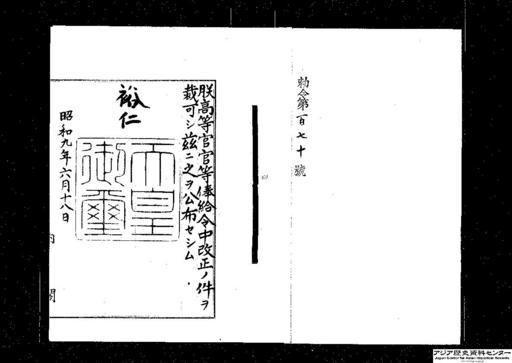 勅令第百七十號
朕高等官官等俸給令中改正ノ件ヲ
裁可シ茲ニ之ヲ公布セシム
裕仁
天皇御璽
昭和九年六月十八日
アジア歴史資料センター
Japan Center for Asian Historical Records